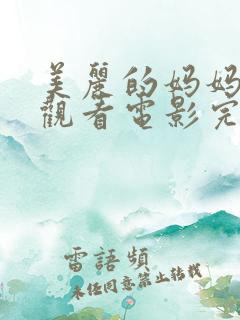 美麗的妈妈
觀看電影完
雷語頻
未任同意禁止转载